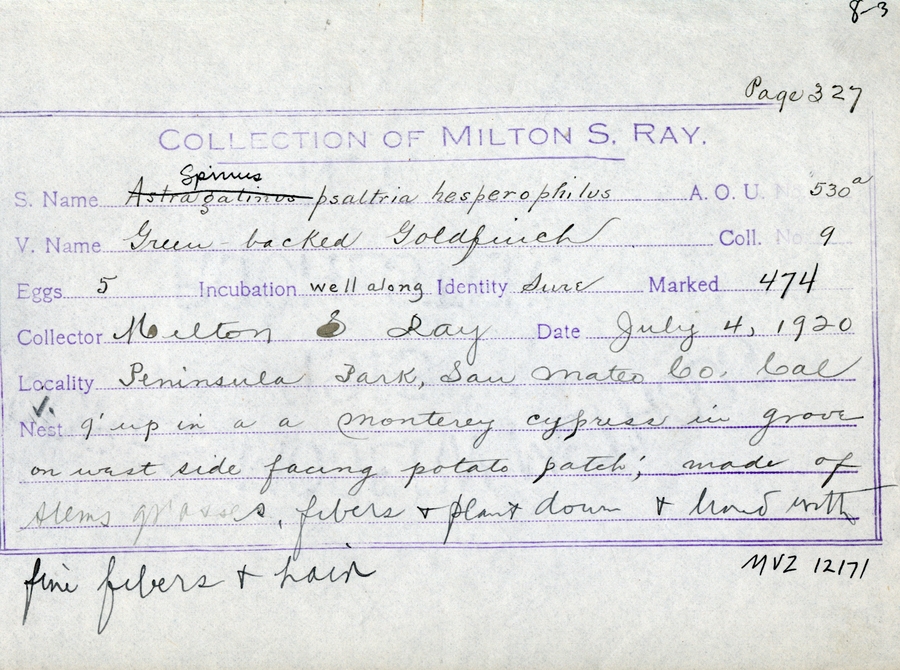 8-3
Page 327
COLLECTION OF MILTON S. RAY.
Spinus
S. Name Astragalinus psaltria hesperophilus A. O. U. No. 530a
V. Name Green-backed Goldfinch Coll. No. 9
Eggs 5 Incubation well along Identity Sure Marked 474
Collector Milton S Ray Date July 4, 1920
Locality Peninsula Park, San Mateo Co. Cal
Nest 9' up in a a monterey cypress in grove
on west side facing potato patch; made of
stems grasses, fibers + plant down + lined with
fine fibers + hair
MVZ 12171